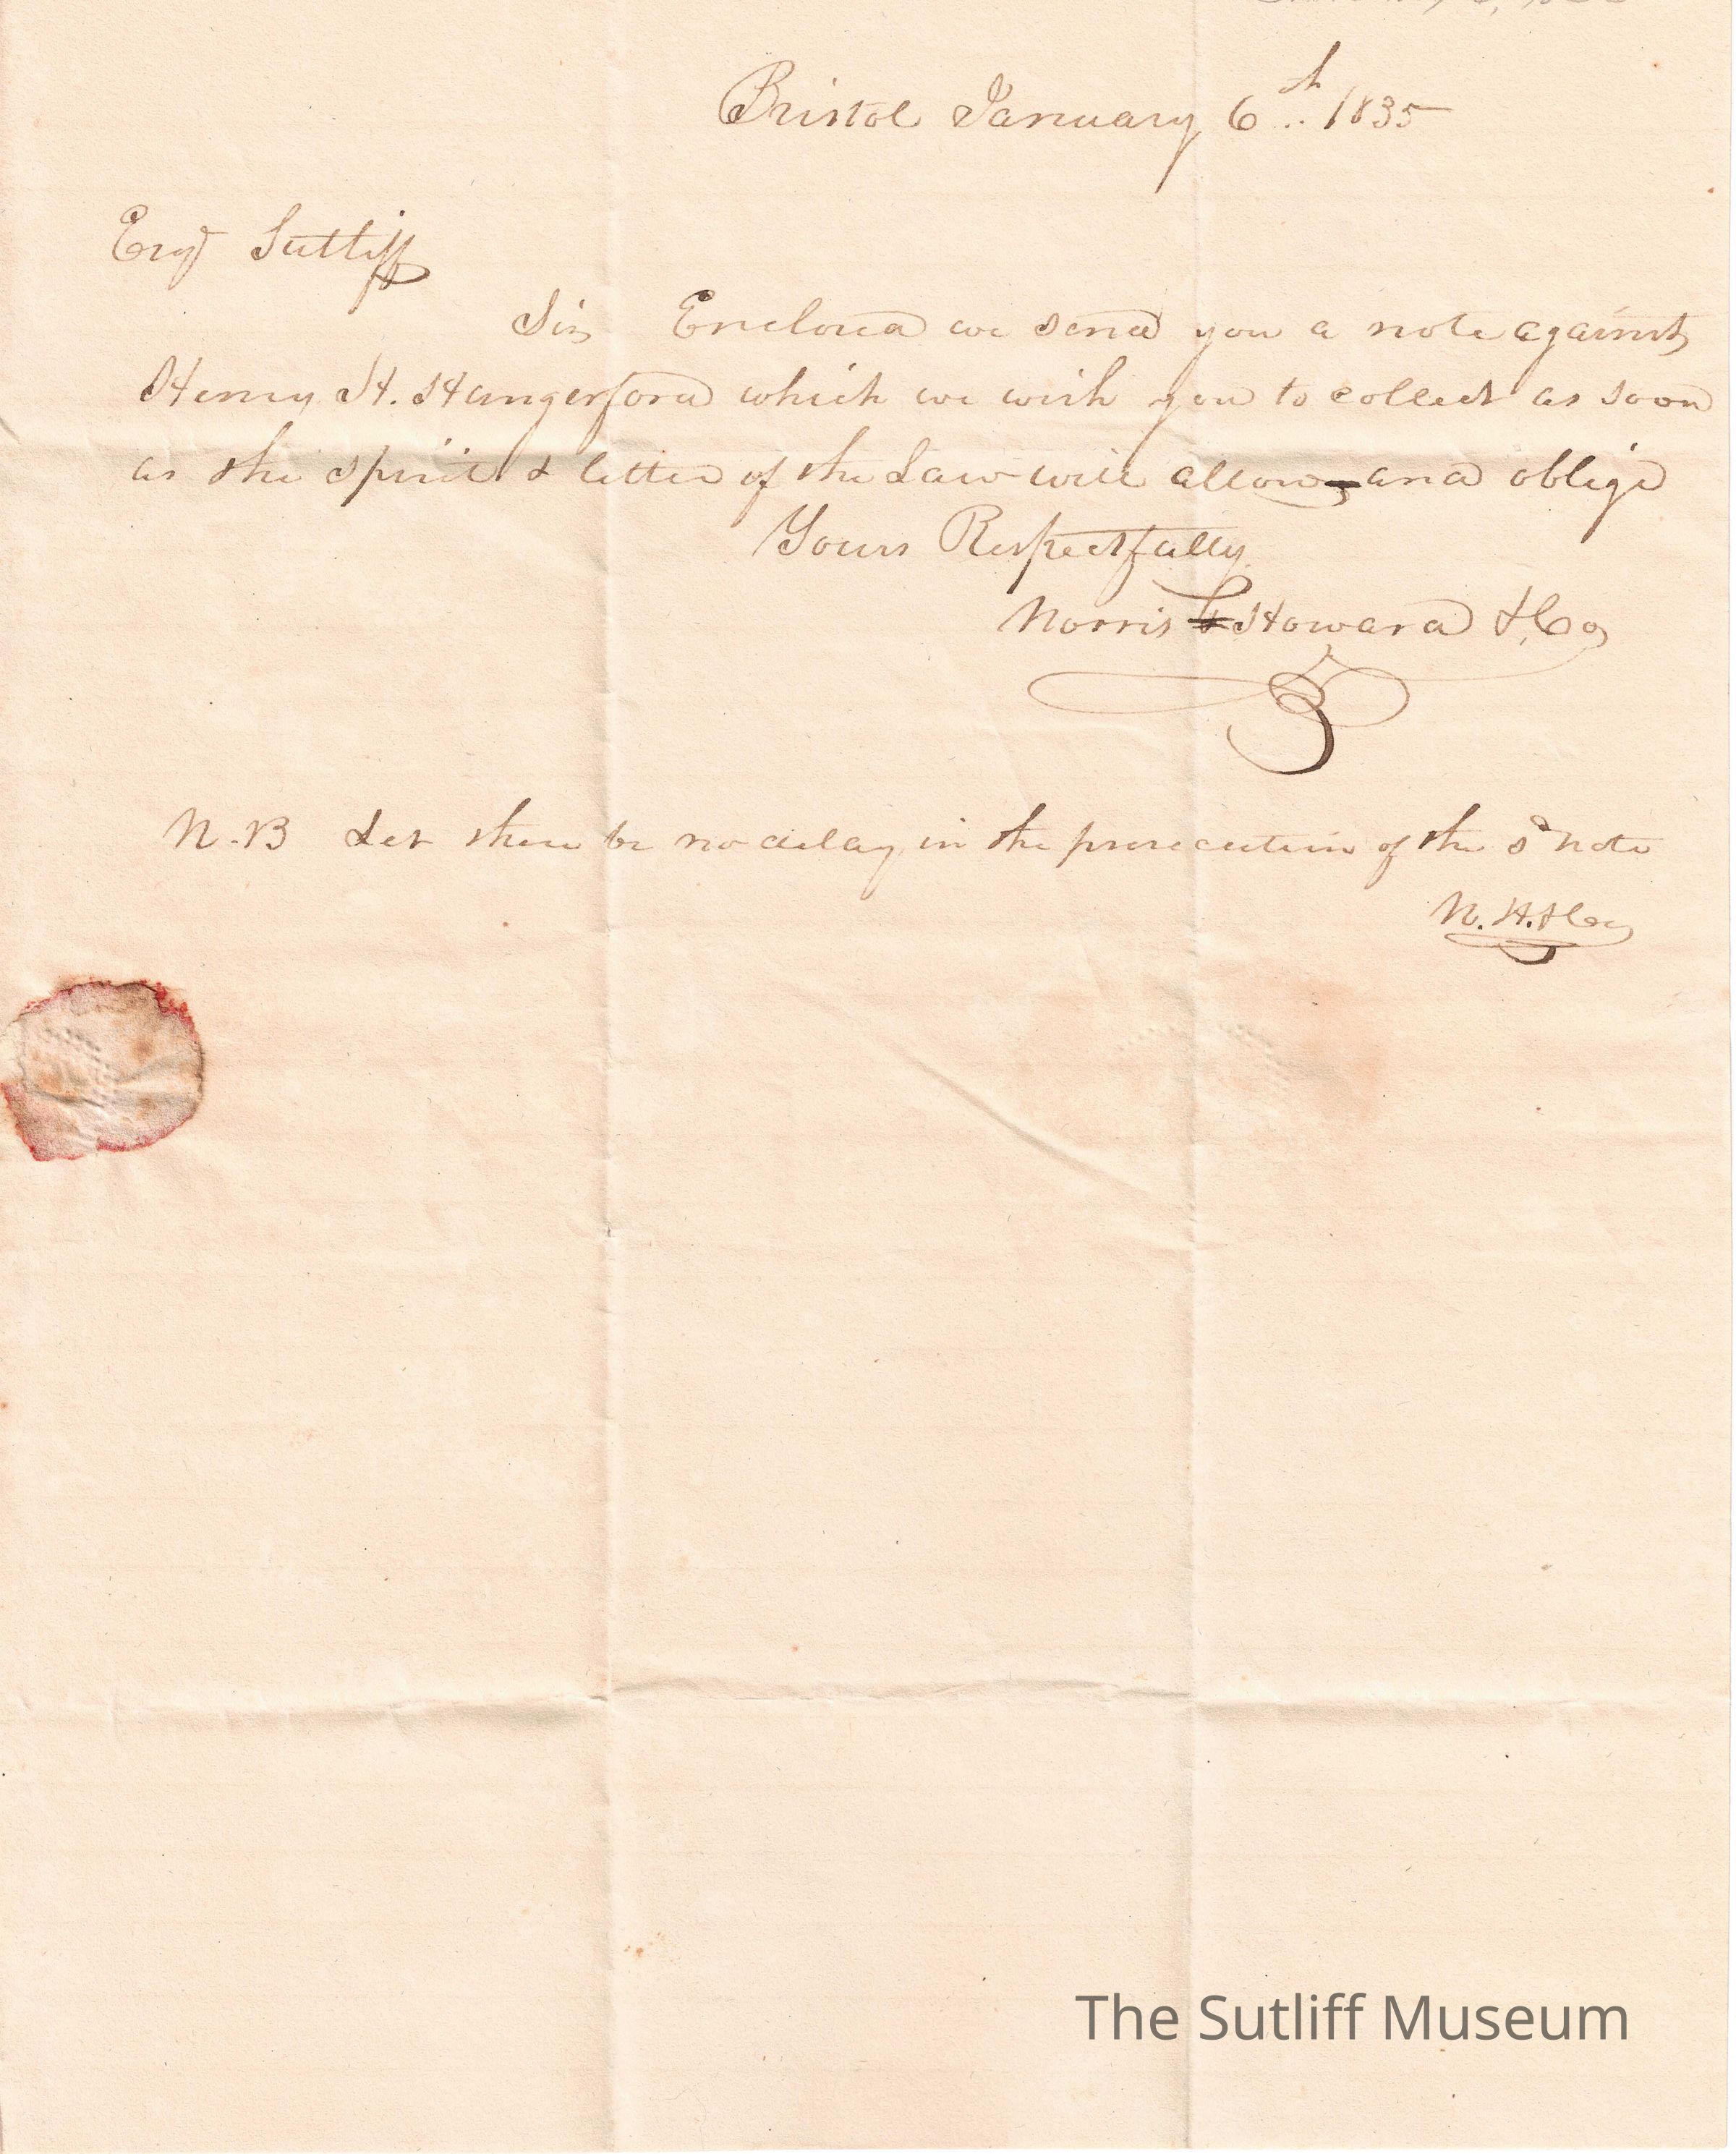 Bristol January 6th 1835
Esqr Sutliff
Sir Enclosed we send you a note against
Henry H. Hungerford which we wish you to collect as soon
as the spirit & letter of the Law will allow and oblige
Yours Respectfully
Norris Howard & Co
N.B Let there be no delay in the prosecution of the sd note
N. H. & Co
The Sutliff Museum